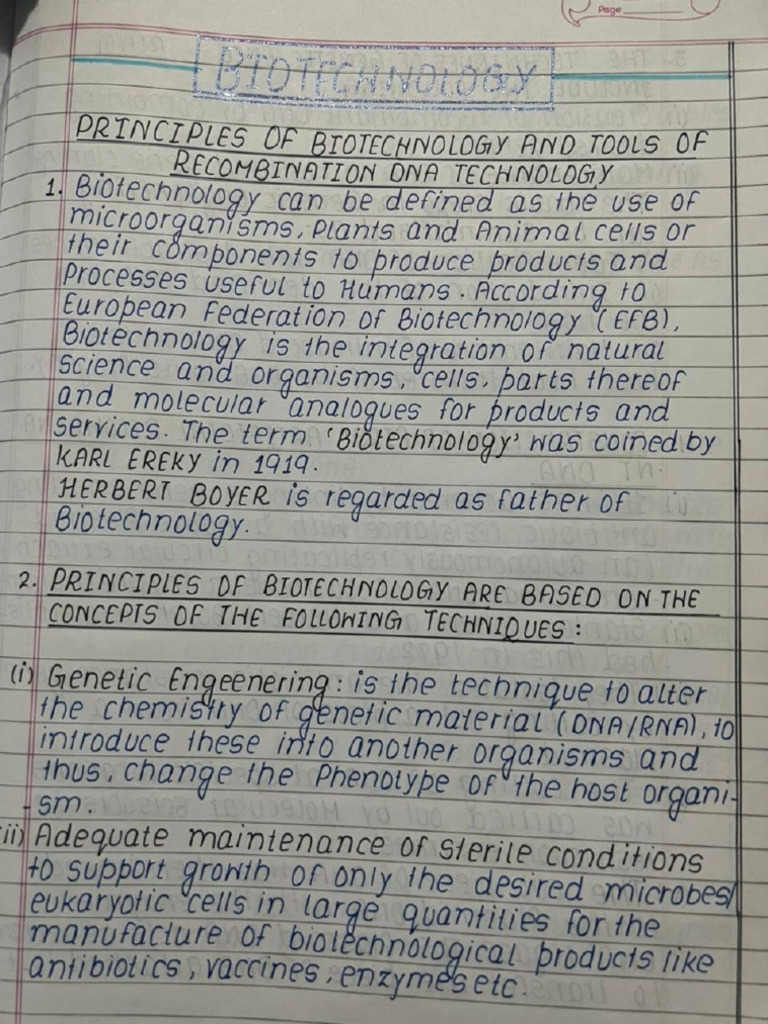 Page
BIOTECHNOLOGY
PRINCIPLES OF BIOTECHNOLOGY AND TOOLS OF
RECOMBINATION DNA TECHNOLOGY
1. Biotechnology can be defined as the use of
microorganisms, Plants and Animal cells or
their components to produce products and
Processes useful to Humans. According to
European Federation of Biotechnology (EFB),
Biotechnology is the integration of natural
science and organisms, cells, parts thereof
and molecular analogues for products and
services. The term 'Biotechnology' was coined by
KARL EREKY in 1919.
HERBERT BOYER is regarded as father of
Biotechnology.
2. PRINCIPLES OF BIOTECHNOLOGY ARE BASED ON THE
CONCEPTS OF THE FOLLOWING TECHNIQUES:
(i) Genetic Engeenering: is the technique to alter
the chemistry of genetic material (DNA/RNA), to
introduce these into another organisms and
thus, change the Phenotype of the host organi-
-sm.
ii) Adequate maintenance of sterile conditions
to support growth of only the desired microbes/
eukaryotic cells in large quantities for the
manufacture of biotechnological products like
antibiotics, vaccines, enzymes etc.